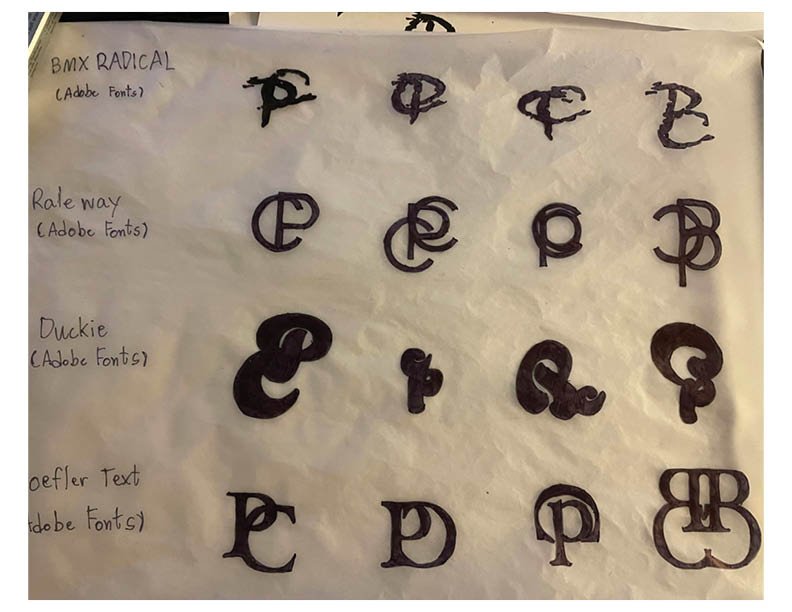 BMX RADICAL
(Adobe Fonts)
Raleway
(Adobe Fonts)
Duckie
(Adobe Fonts)
oefler Text
dobe Fonts)